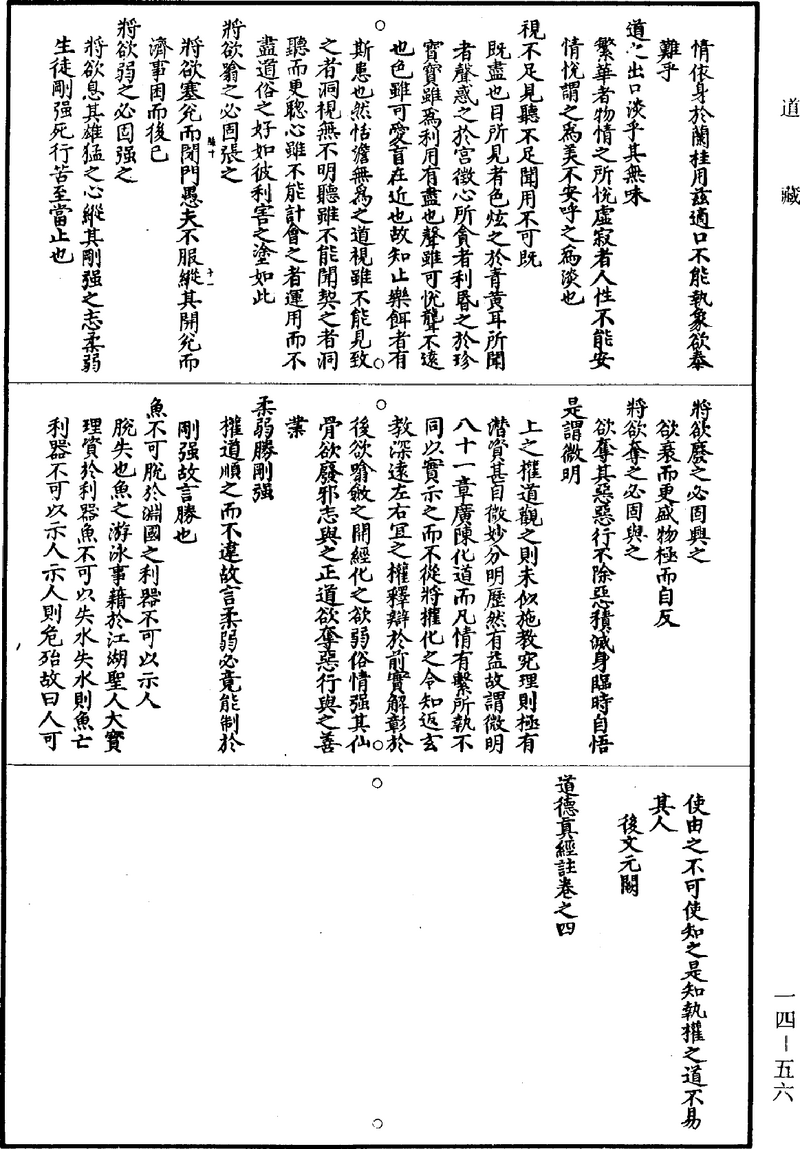 道藏
情依身於蘭桂用茲適口不能執象欲奉
難乎
道之出口淡乎其無味
繁華者物情之所悅虛寂者人性不能安
情悅謂之為美不安呼之為淡也
視不足見聽不足聞用不可既
既盡也目所見者色炫之於青黃耳所聞
者聲惑之於宮徵心所貪者利昬之於珍
寶寶雖為利用有盡也聲雖可悅聾不遠
也色雖可愛盲在近也故知止樂餌者有
斯患也然恬澹無為之道視雖不能見致
之者洞視無不明聽雖不能聞契之者洞
聽而更聦心雖不能計會之者運用而不
盡道俗之好如彼利害之塗如此
將欲翕之必固張之
將欲塞兊而閉門愚夫不服縱其開兊而
濟事困而後已
將欲弱之必固强之
將欲息其雄猛之心縱其剛强之志柔弱
生徒剛强死行苦至當止也
將欲廢之必固興之
欲衰而更盛物極而自反
將欲奪之必固與之
欲奪其惡惡行不除惡積滅身臨時自悟
是謂微明
上之權道觀之則未似施教究理則極有
潛資甚自微妙分明歷然有益故謂微明
八十一章廣陳化道而凡情有繫所執不
同以實示之而不從將權化之令知返玄
教深遠左右宜之權釋辯於前實解彰於
後欲噏斂之開經化之欲弱俗情强其仙
骨欲廢邪志與之正道欲奪惡行與之善
業
柔弱勝剛强
權道順之而不違故言柔弱必竟能制於
剛强故言勝也
魚不可脫於淵國之利器不可以示人
脫失也魚之游泳事藉於江湖聖人大寶
理資於利器魚不可以失水失水則魚亡
利器不可以示人示人則危殆故曰人可
使由之不可使知之是知執權之道不易
其人
後文元闕
道德真經註卷之四
一四－五六